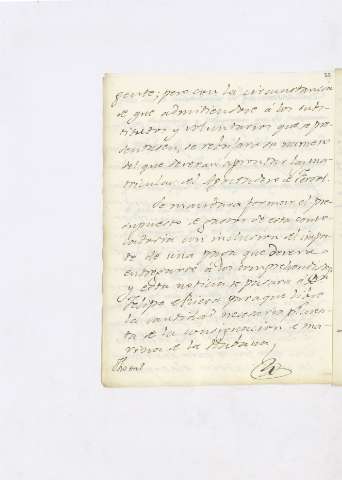 gente; pero con la circunstancia
de que admitiendose á los subs-
titutos y voluntarios que se pre-
senten, se rebaxara su numero
del que deveran aprontar las ma-
triculas del Apostadero de Ferrol.
Se mandara formar el pre-
supuesto de gastos de esta conta-
daduria con inclusion del impor-
te de una paga que devera
entregarse á los comprehendidos,
y esta noticia se pasara a Dn
Felipe Riera para que libre
la cantidad necesaria p.r cuen-
ta de la consignacion de ma-
rina de la Habana,